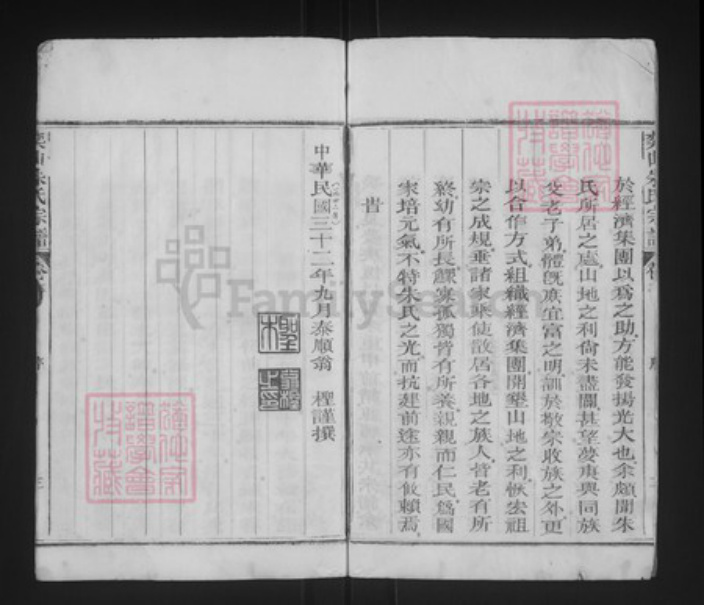 於經濟集團以爲之助方能發揚光大也余頗聞朱
氏所居之處山地之利尙未盡闢甚望夢輿與同族
父老子弟體旣庶宜富之明訓於敬宗收族之外更
以合作方式組織經濟集團開墾山地之利恢宏祖
宗之成規垂諸家乘使散居各地之族人皆老有所
終幼有所長鰥寡孤獨皆有所養親親而仁民爲國
家培元氣不特朱氏之光而抗建前途亦有攸賴焉
旹
中華民國三十二年九月泰順翁 檉謹撰
朱氏宗譜
FamilySearch